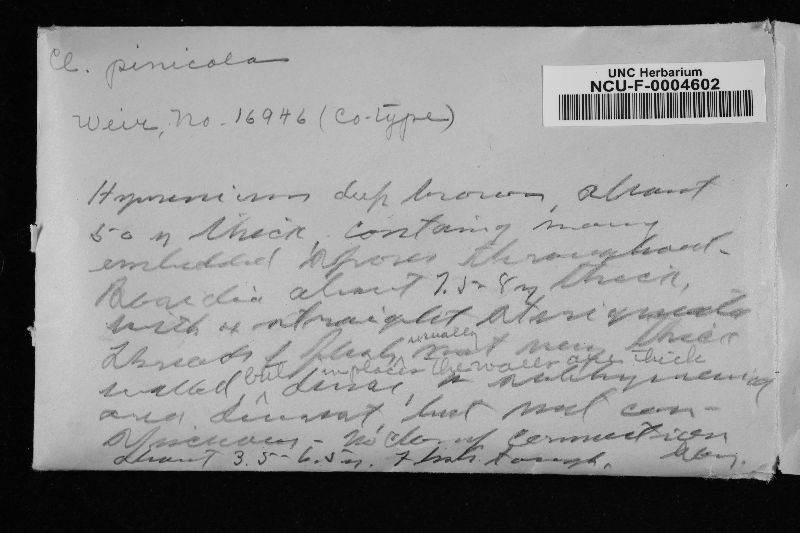 Cl. pinicola
UNC Herbarium
NCU-F-0004602
Weir, No. 16946 (Co-type)
Hymenium deep brown, about
50 μ thick, containg many
embedded spores throughout-
Basidia about 7.5-8μ thick,
with 4 straight sterigmata
threads of flesh usually not very thick
walled but in places the walls are thick dense, subhymenial
area densest, but not con-
spicuous - No clamp connection
about 3.5-6.5μ. Flesh tough.